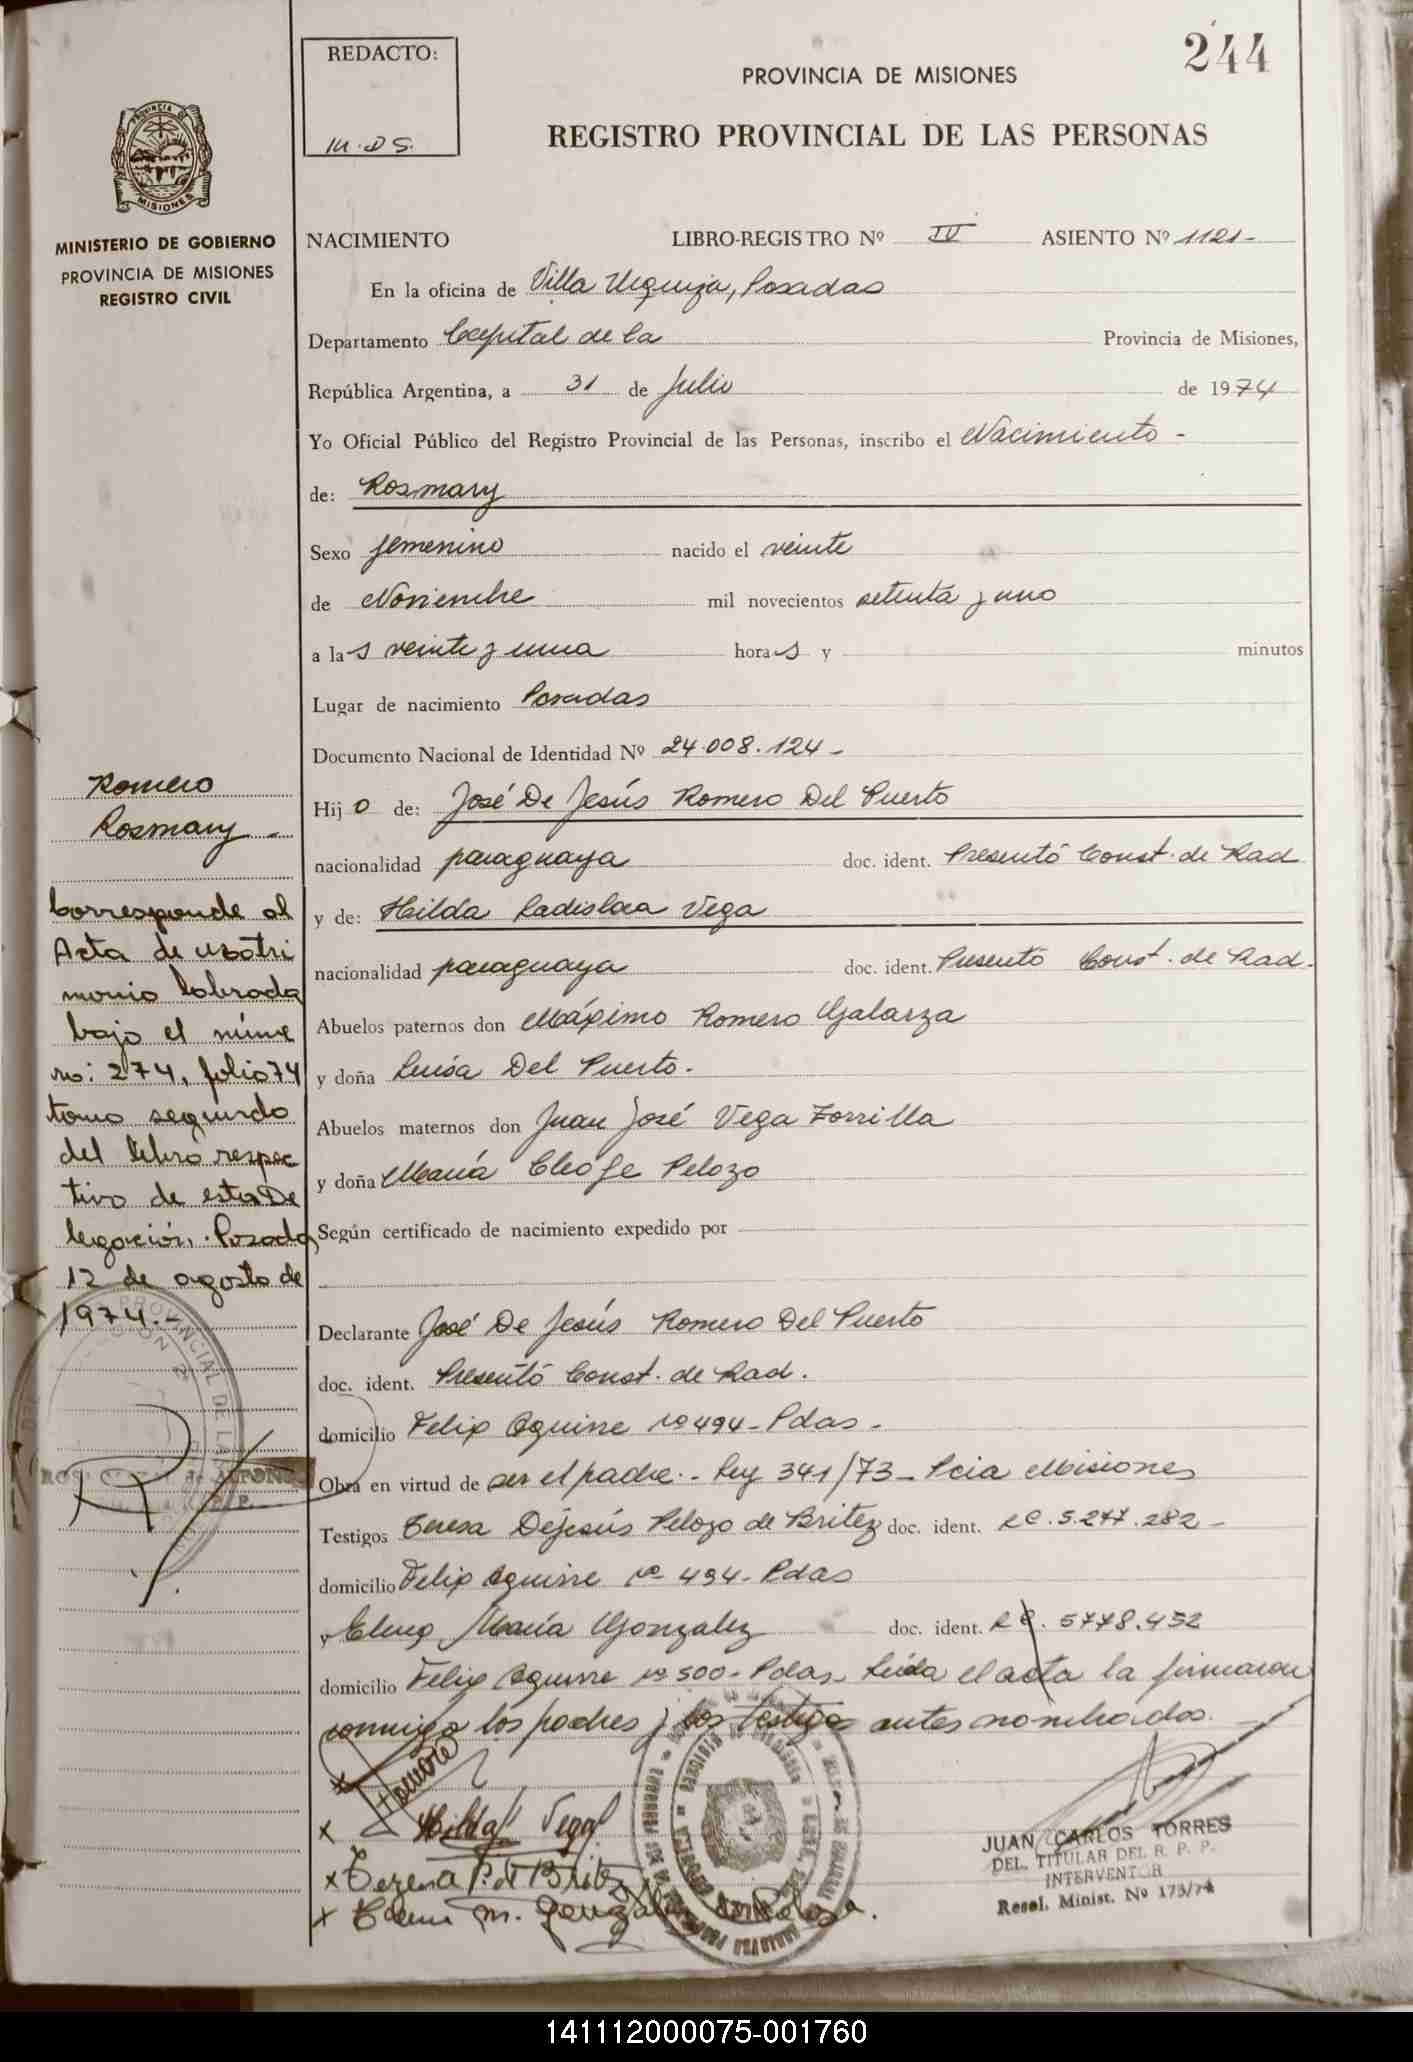 244
REDACTO:
M.D S.
PROVINCIA DE MISIONES
REGISTRO PROVINCIAL DE LAS PERSONAS
PROVINCIA DE
MISIONES
MINISTERIO DE GOBIERNO
PROVINCIA DE MISIONES
REGISTRO CIVIL
NACIMIENTO LIBRO-REGISTRO Nº IV ASIENTO Nº 1121-
En la oficina de Villa Urquiza, Posadas
Departamento Capital de la Provincia de Misiones,
República Argentina, a 31 de Julio de 1974
Yo Oficial Público del Registro Provincial de las Personas, inscribo el Nacimiento -
de: Rosmary
Sexo femenino nacido el veinte
de Noviembre mil novecientos setenta y uno
a las veinte y una horas y minutos
Lugar de nacimiento Posadas
Documento Nacional de Identidad Nº 24.008.124-
Hijo de: José De Jesús Romero Del Puerto
nacionalidad paraguaya doc. ident. Presentó Const. de Rad
y de: Hilda Ladislaa Vega
nacionalidad paraguaya doc. ident. Presentó Const. de Rad.
Abuelos paternos don Máximo Romero Galarza
y doña Luisa Del Puerto.
Abuelos maternos don Juan José Vega Zorrilla
y doña María Cleofe Pelozo
Según certificado de nacimiento expedido por
Declarante José De Jesús Romero Del Puerto
doc. ident. Presentó Const. de Rad.
domicilio Felix Aguirre nº 494- Pdas-
Obra en virtud de ser el padre.- Ley 341/73- Pcia Misiones
Testigos Teresa Dejesús Pelozo de Britez doc. ident. LC.5.247.282-
domicilio Felix Aguirre nº 494- Pdas
y Elena María Gonzalez doc. ident. LC. 5778.452
domicilio Felix Aguirre nº 500- Pdas- Leída el acta la firmaron
conmigo los padres y los testigos antes nombrados.
Romero
Rosmary -
Corresponde al
Acta de matri
monio labrada
bajo el núme
ro: 274, folio 74
tomo segundo
del libro respec
tivo de esta De
legación. Posadas
12 de agosto de
1974.-
PROVINCIAL DE LAS
x Romero
x Hilda Vega
x Teresa P. d Britez
x Elena M. Gonzalez
JUAN CARLOS TORRES
DEL. TITULAR DEL R. P. P.
INTERVENTOR
Resol. Minist. Nº 173/74
141112000075-001760